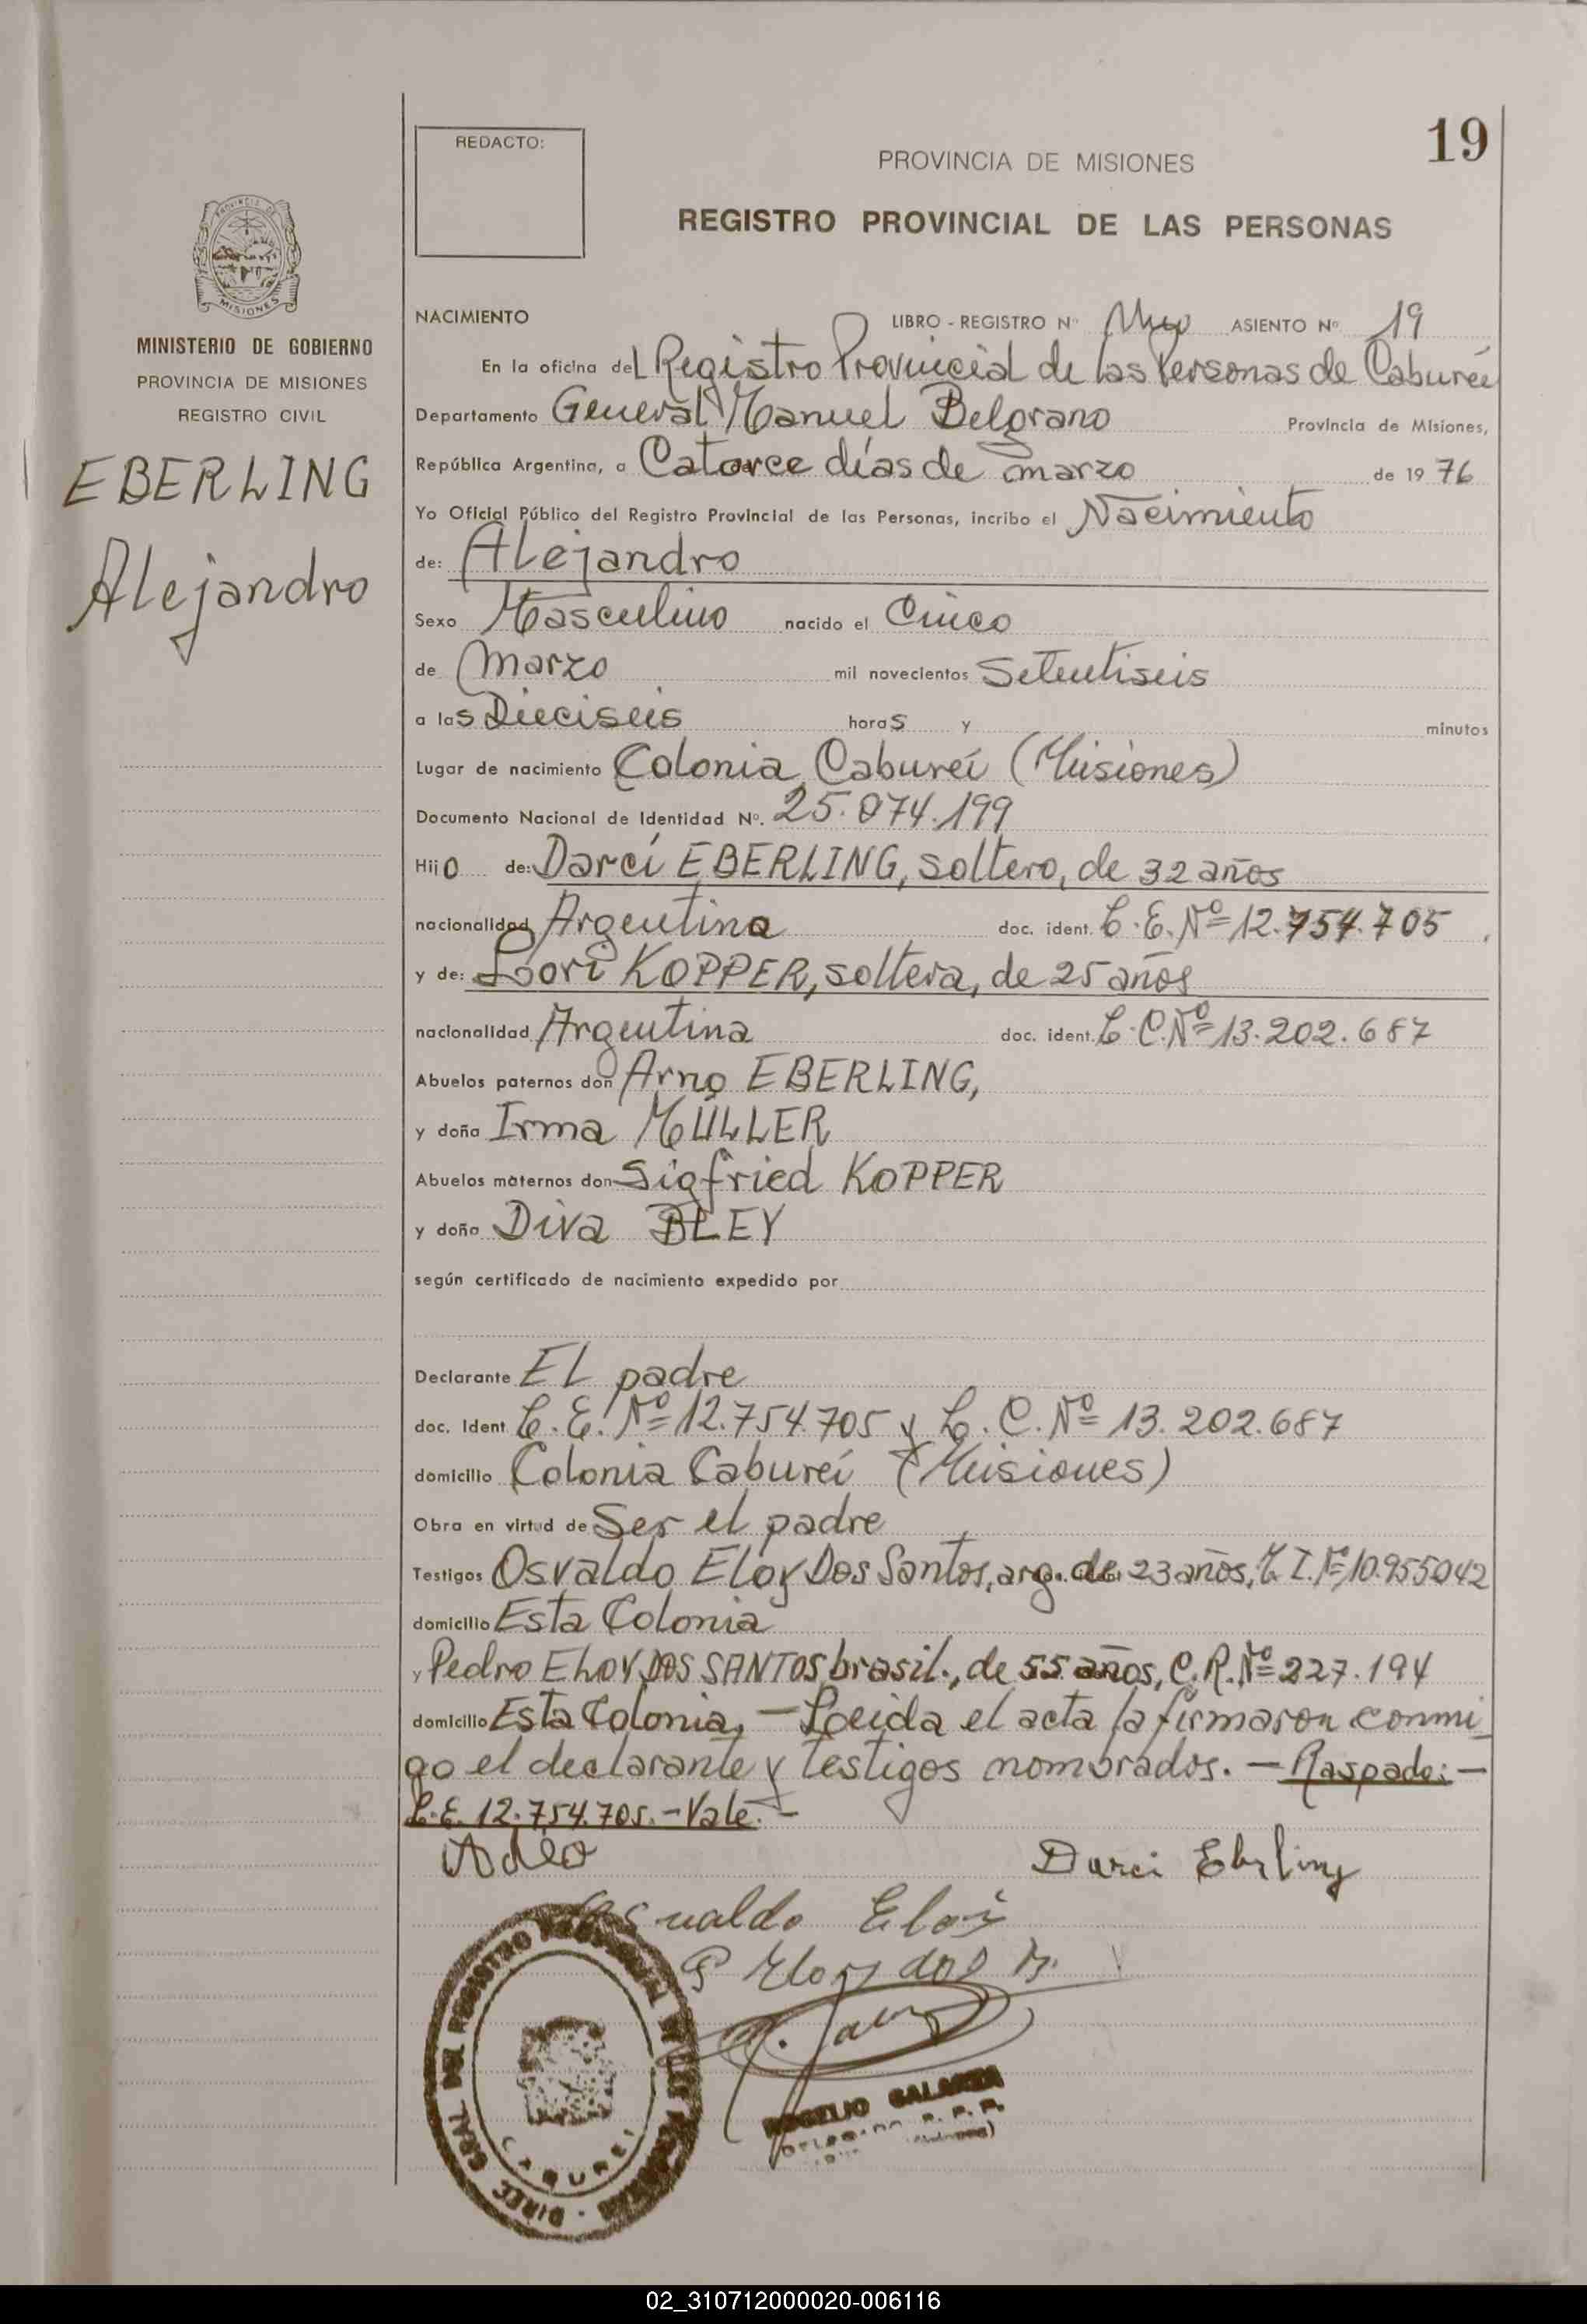 19
REDACTO:
PROVINCIA DE MISIONES
REGISTRO PROVINCIAL DE LAS PERSONAS
PROVINCIA DE
MISIONES
MINISTERIO DE GOBIERNO
PROVINCIA DE MISIONES
REGISTRO CIVIL
EBERLING
Alejandro
NACIMIENTO LIBRO - REGISTRO Nº Uno ASIENTO Nº 19
En la oficina del Registro Provincial de las Personas de Cabureí
Departamento General Manuel Belgrano Provincia de Misiones,
República Argentina, a Catorce días de marzo de 1976
Yo Oficial Público del Registro Provincial de las Personas, incribo el Nacimiento
de: Alejandro
Sexo Masculino nacido el Cinco
de marzo mil novecientos Setentiseis
a las Dieciseis horas y minutos
Lugar de nacimiento Colonia Cabureí (Misiones)
Documento Nacional de Identidad Nº. 25.074.199
Hijo de: Darcí EBERLING, soltero, de 32 años
nacionalidad Argentina doc. ident. L.E. Nº 12.754.705
y de: Lori KOPPER, soltera, de 25 años
nacionalidad Argentina doc. ident. L.C. Nº 13.202.687
Abuelos paternos don Arno EBERLING,
y doña Irma MÜLLER
Abuelos maternos don Sigfried KOPPER
y doña Diva BLEY
según certificado de nacimiento expedido por
Declarante El padre
doc. Ident. L.E. Nº 12.754.705 y L.C. Nº 13.202.687
domicilio Colonia Cabureí (Misiones)
Obra en virtud de Ser el padre
Testigos Osvaldo Eloy Dos Santos, arg. de 23 años, Nº 10.955042
domicilio Esta Colonia
y Pedro ELOY DOS SANTOS, brasil., de 55 años, C.R. Nº 227.194
domicilio Esta Colonia, - Leida el acta la firmaron conmi
go el declarante y testigos nombrados. - Raspado: -
L.E. 12.754.705. - Vale. -
Darci Eberling
Osvaldo Eloi
P Eloy dos
DIREC. GRAL. DEL REGISTRO PROVINCIAL DE LAS PERSONAS
CABUREI
ROGELIO GALARZA
DELEGADO R. P. P.
02_310712000020-006116